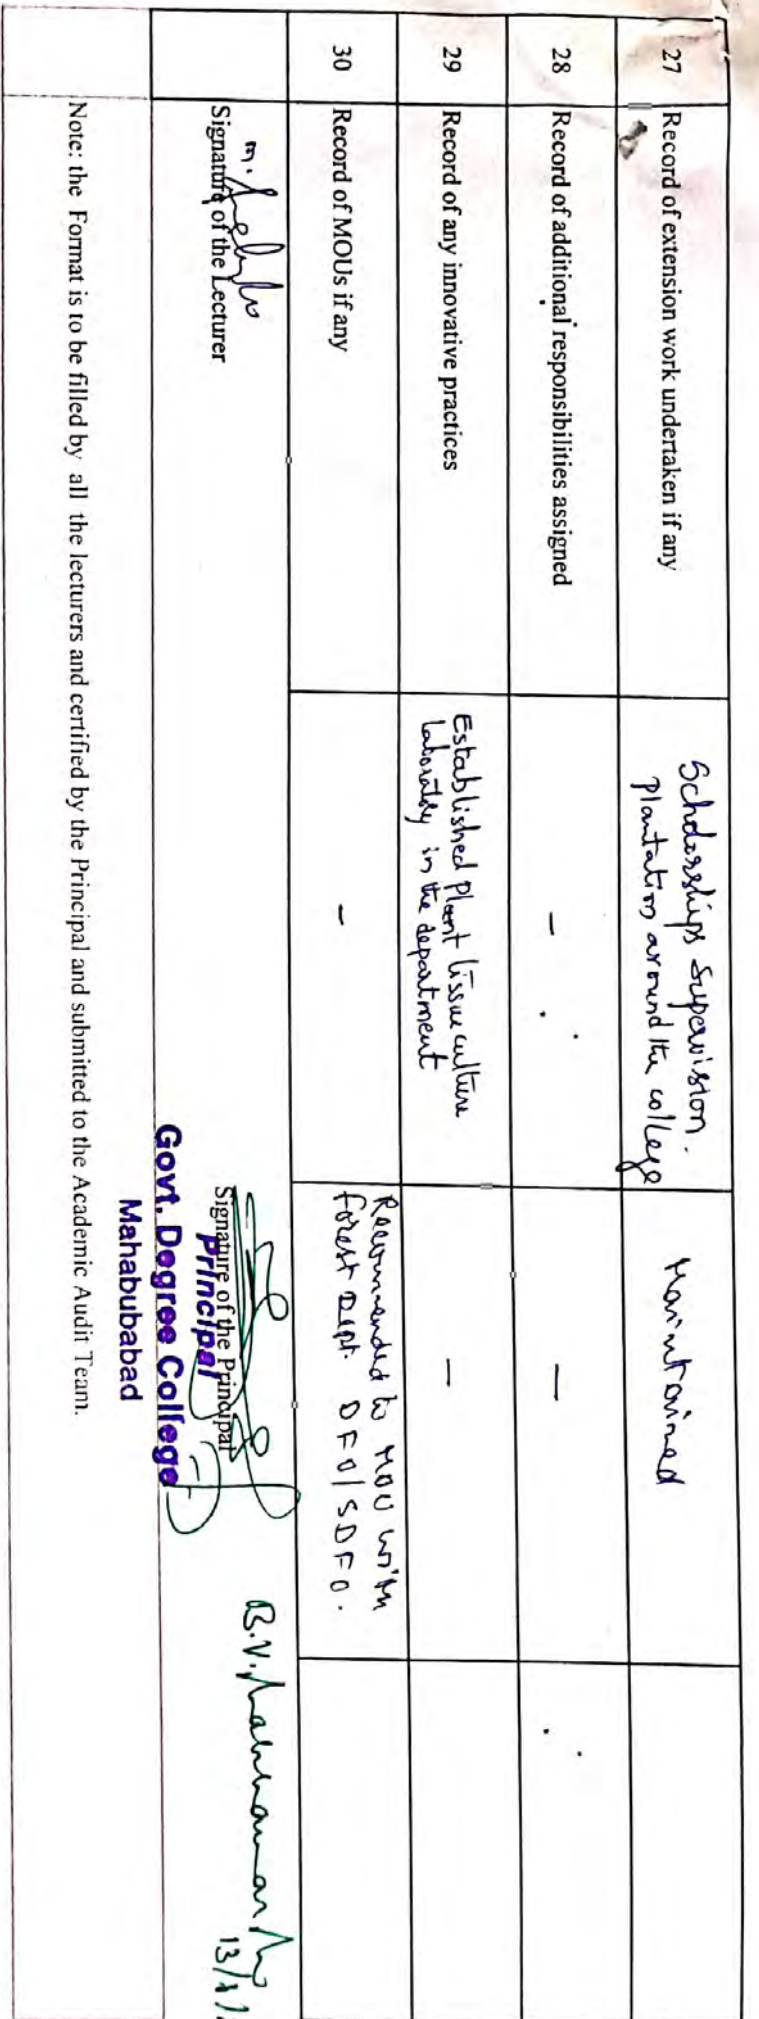 27 Record of extension work undertaken if any Scholarships Supervision. Maintained
Plantation around the college
28 Record of additional responsibilities assigned — —
29 Record of any innovative practices Established Plant tissue culture —
laboratory in the department
30 Record of MOUs if any - Recommended to MOU with
Forest Dept. DFO/SDFO.
m.
Signature of the Lecturer
Signature of the Principal
Principal
Govt. Degree College
Mahabubabad
B.V.
Note: the Format is to be filled by all the lecturers and certified by the Principal and submitted to the Academic Audit Team.